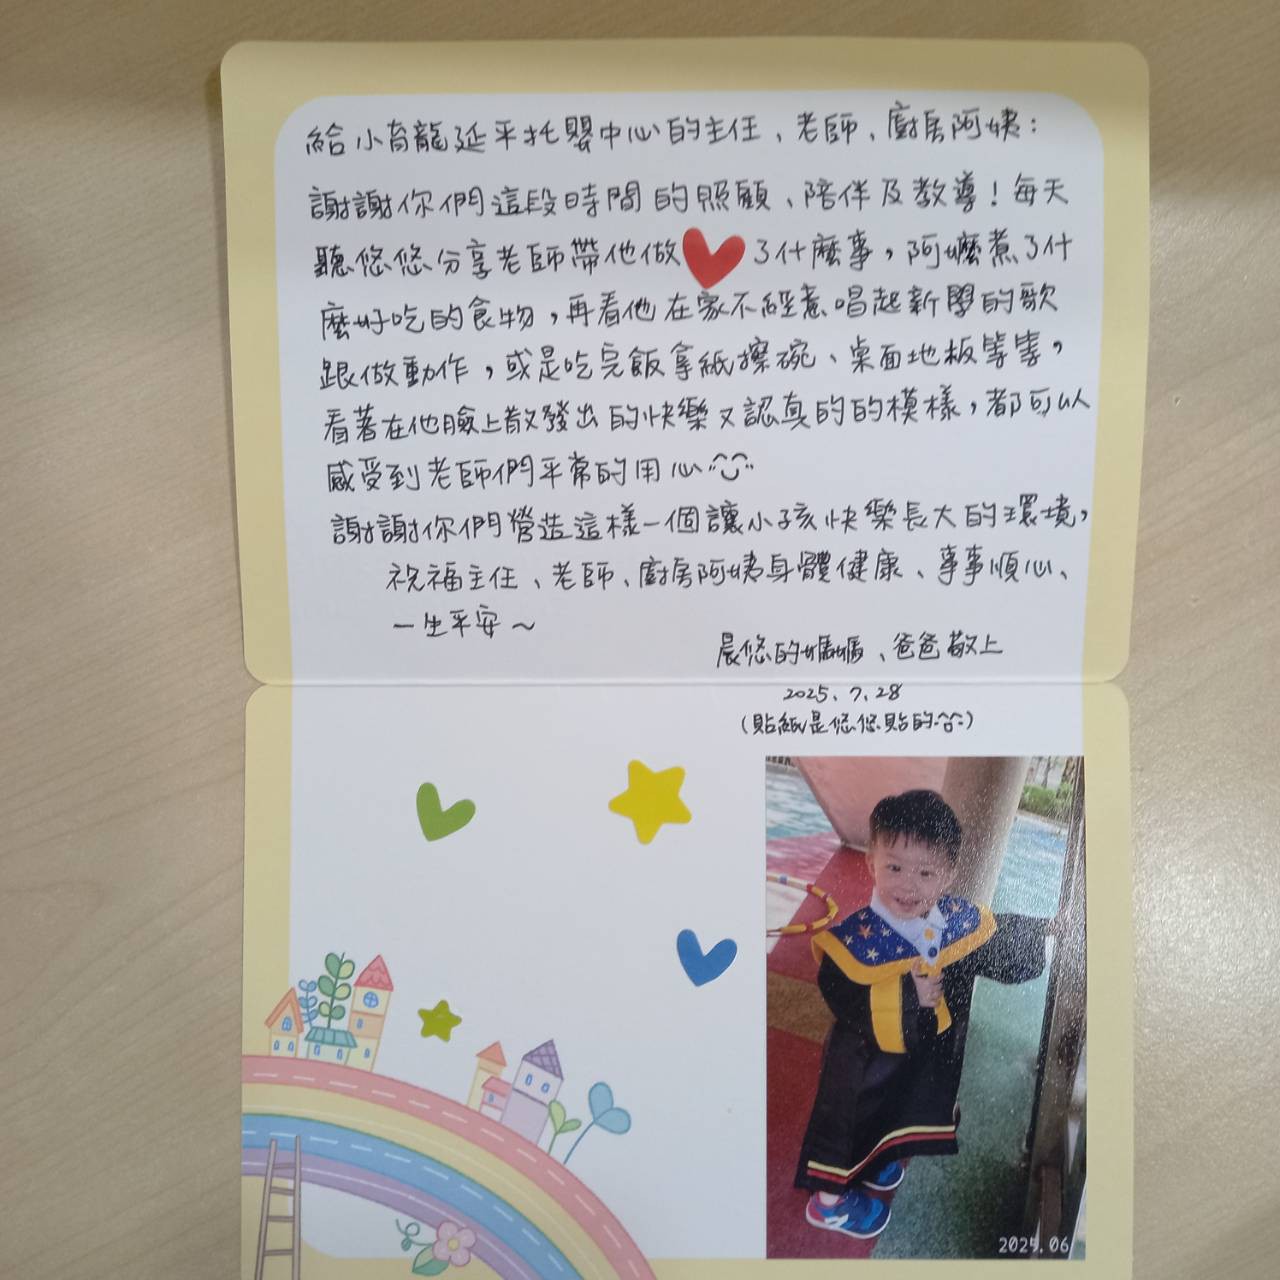 給小育龍延平托嬰中心的主任、老師、廚房阿姨：
謝謝你們這段時間的照顧、陪伴及教導！每天
聽悠悠分享老師帶他做了什麼事，阿嬤煮了什
麼好吃的食物，再看他在家不經意唱起新學的歌
跟做動作，或是吃完飯拿紙擦碗、桌面地板等等，
看著在他臉上散發出的快樂又認真的的模樣，都可以
感受到老師們平常的用心
謝謝你們營造這樣一個讓小孩快樂長大的環境，
祝福主任、老師、廚房阿姨身體健康、事事順心、
一生平安～
晨悠的媽媽、爸爸敬上
2025.7.28
（貼紙是悠悠貼的^^）
2025.06